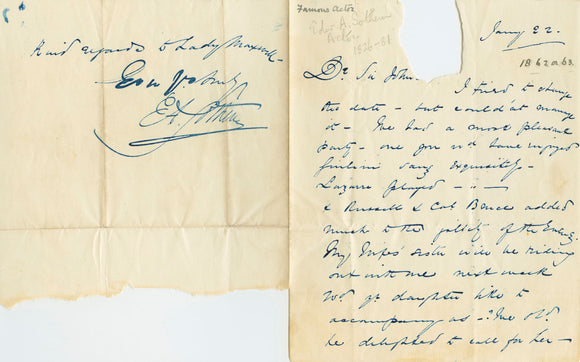 Famous Actor
Edw A. Sothern
Actor
1826-81
Jany 22.
1862 or 63.
Dr. Sir John.
I tried to change
the date - but couldn't manage
it - We had a most pleasant
party - one you wd have enjoyed
sang exquisitely -
played -
& Russell & Col Bruce added
much to the jollity of the Eveng.
My Wife's sister will be riding
out with me next week
Wd yr daughter like to
accompany us - ? We shd
be delighted to call for her -
Kind regards to Lady Maxwell -
Ever Yrs truly
EA. Sothern